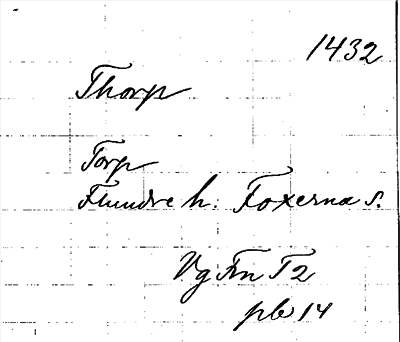 1432
Thorp
Torp
Flundre h. Foxerna s.
Vg Frn T2
pb 14